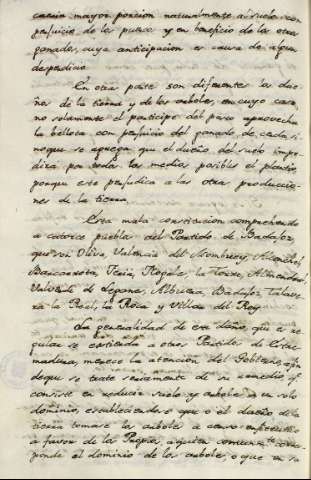 mayor porcion naturalmente al suelo con
perjuicio de la puesta y en beneficio de los otros
ganados, cuya anticipacion es causa de algun
desperdicio
En otra parte son diferentes los due-
ños de la tierra y de los arboles, en cuyo caso
no solamente el participe del piso aprovecha
la bellota con perjuicio del ganado de cerda, si-
no que se agrega que el dueño del suelo impe-
dira por todos los medios posibles el plantio,
porque este perjudica a las otras produccio-
nes de la tierra.
Esta mala constitucion comprehende
a catorce pueblos del Partido de Badajoz,
que son Oliva, Valencia del Mombuey, Alconchel,
Barcarrota, Feria, Nogales, la Torre, Almendral,
Valverde de Leganes, Albuera, Badajoz, Talave-
ra la Real, la Roca y Villar del Rey.
La generalidad de este daño, que es re-
gular se estienda a otros Partidos de Estre-
madura, merece la atencion del Gobierno a fin
de que se trate seriamente de su remedio, que
consiste en reducir suelo y arboles a un solo
dominio, estableciendo o que el dueño de la
tierra tomase los arboles a censo
a favor de los Propios, a quien comunmte corres-
ponde el dominio de los arboles, o que en su